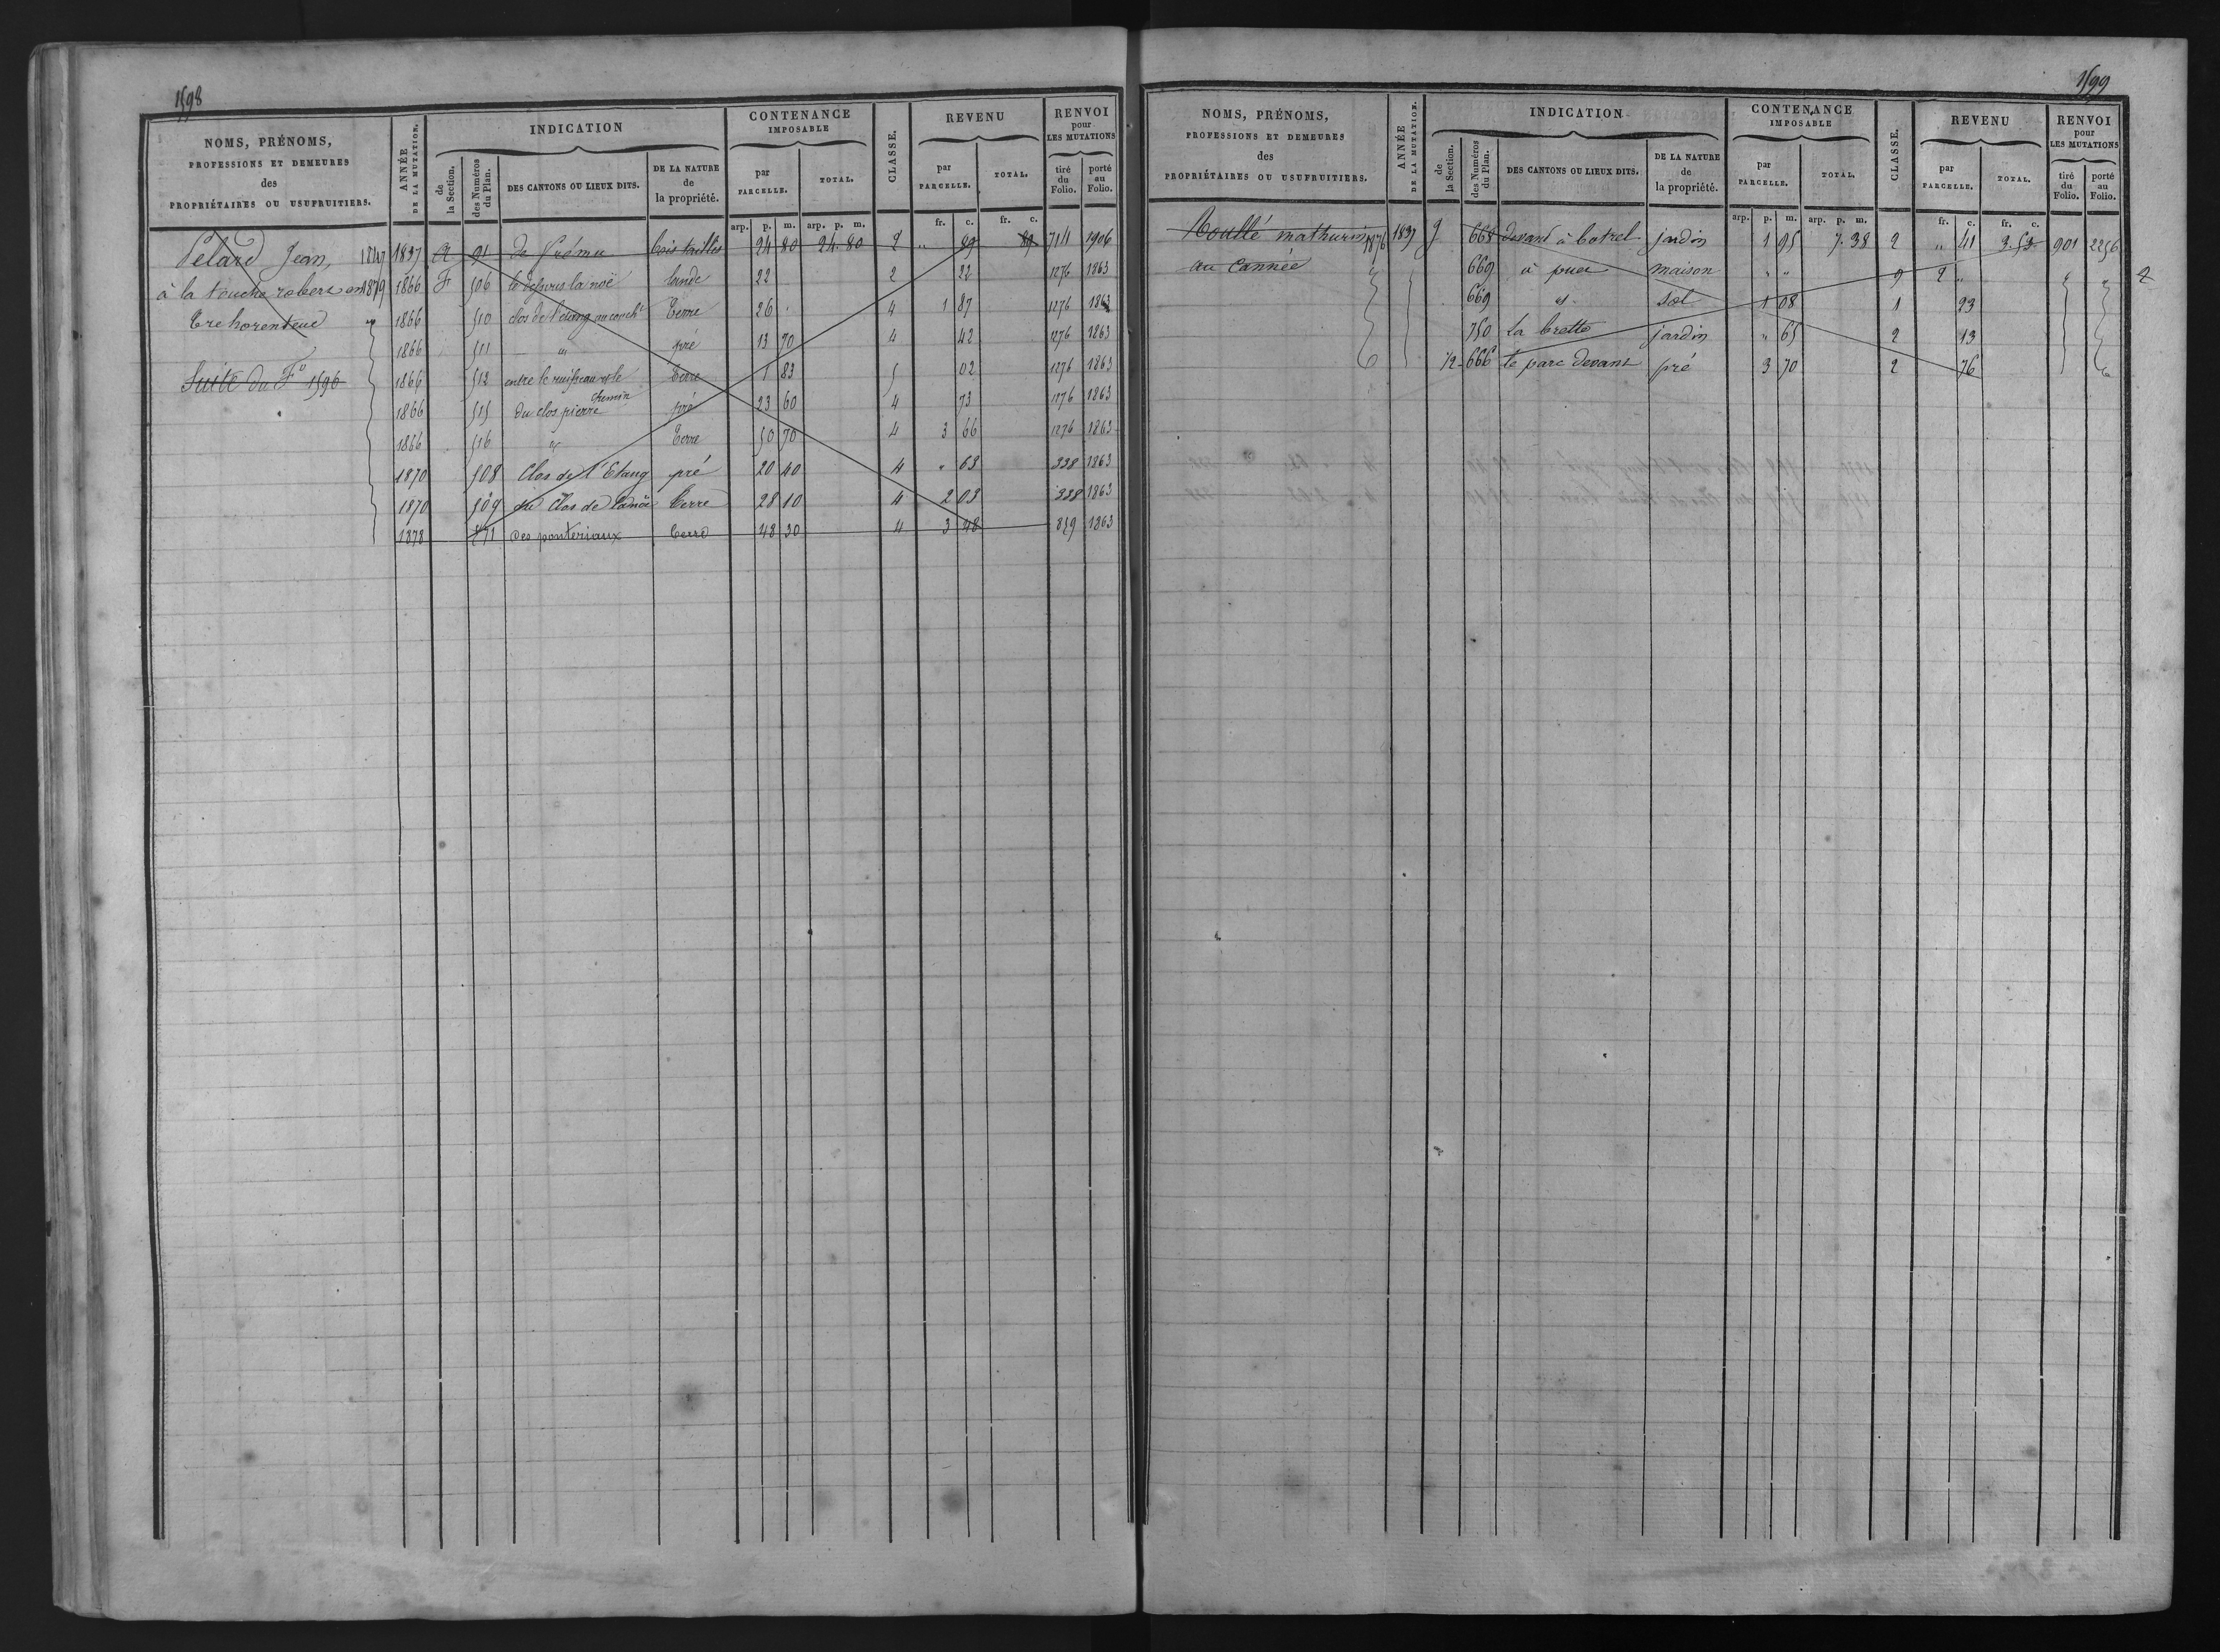 1598
NOMS, PRÉNOMS,
PROFESSIONS ET DEMEURES
des
PROPRIÉTAIRES OU USUFRUITIERS.
ANNÉE
DE LA MUTATION.
INDICATION
de
la Section.
des Numéros
du Plan.
DES CANTONS OU LIEUX DITS.
DE LA NATURE
de
la propriété.
CONTENANCE
IMPOSABLE
par
PARCELLE.
TOTAL.
CLASSE.
REVENU
par
PARCELLE.
TOTAL.
RENVOI
pour
LES MUTATIONS
tiré
du
Folio.
porté
au
Folio.
arp. p. m. arp. p. m. fr. c. fr. c.
Pelard Jean, 1847 1837 A 91 bois taillis 24 80 24. 80 2 " 89 89 1906
à la touche robert en 1879 1866 F 506 la noë lande 22 2 22 1276 1863
Trehorenteuc 1866 510 clos de l'étang Terre 26 4 1 87 1276 1863
1866 511 " pré 13 70 4 42 1276 1863
Suite du F° 1596 1866 512 entre le ruisseau et le chemin Terre 1 83 5 02 1276 1863
1866 515 du clos pierre pré 23 60 4 73 1276 1863
1866 516 " Terre 50 70 4 3 66 1276 1863
1870 508 Clos de l'Etang pré 20 40 4 " 63 338 1863
1870 509 Clos de Terre 28 10 4 2 03 338 1863
1878 des ponteriaux Terre 48 30 4 3 48 859 1863
1599
NOMS, PRÉNOMS,
PROFESSIONS ET DEMEURES
des
PROPRIÉTAIRES OU USUFRUITIERS.
ANNÉE
DE LA MUTATION.
INDICATION
de
la Section.
des Numéros
du Plan.
DES CANTONS OU LIEUX DITS.
DE LA NATURE
de
la propriété.
CONTENANCE
IMPOSABLE
par
PARCELLE.
TOTAL.
CLASSE.
REVENU
par
PARCELLE.
TOTAL.
RENVOI
pour
LES MUTATIONS
tiré
du
Folio.
porté
au
Folio.
arp. p. m. arp. p. m. fr. c. fr. c.
mathurin 1876 1837 g 668 devant à botrel jardin 1 95 7. 38 2 " 41 3. 53 901 2256
au Cannée 669 à maison " " 9 2 "
669 sol 1 08 1 23
750 La brette jardin " 65 2 13
1/2 666 le parc devant pré 3 70 2 76